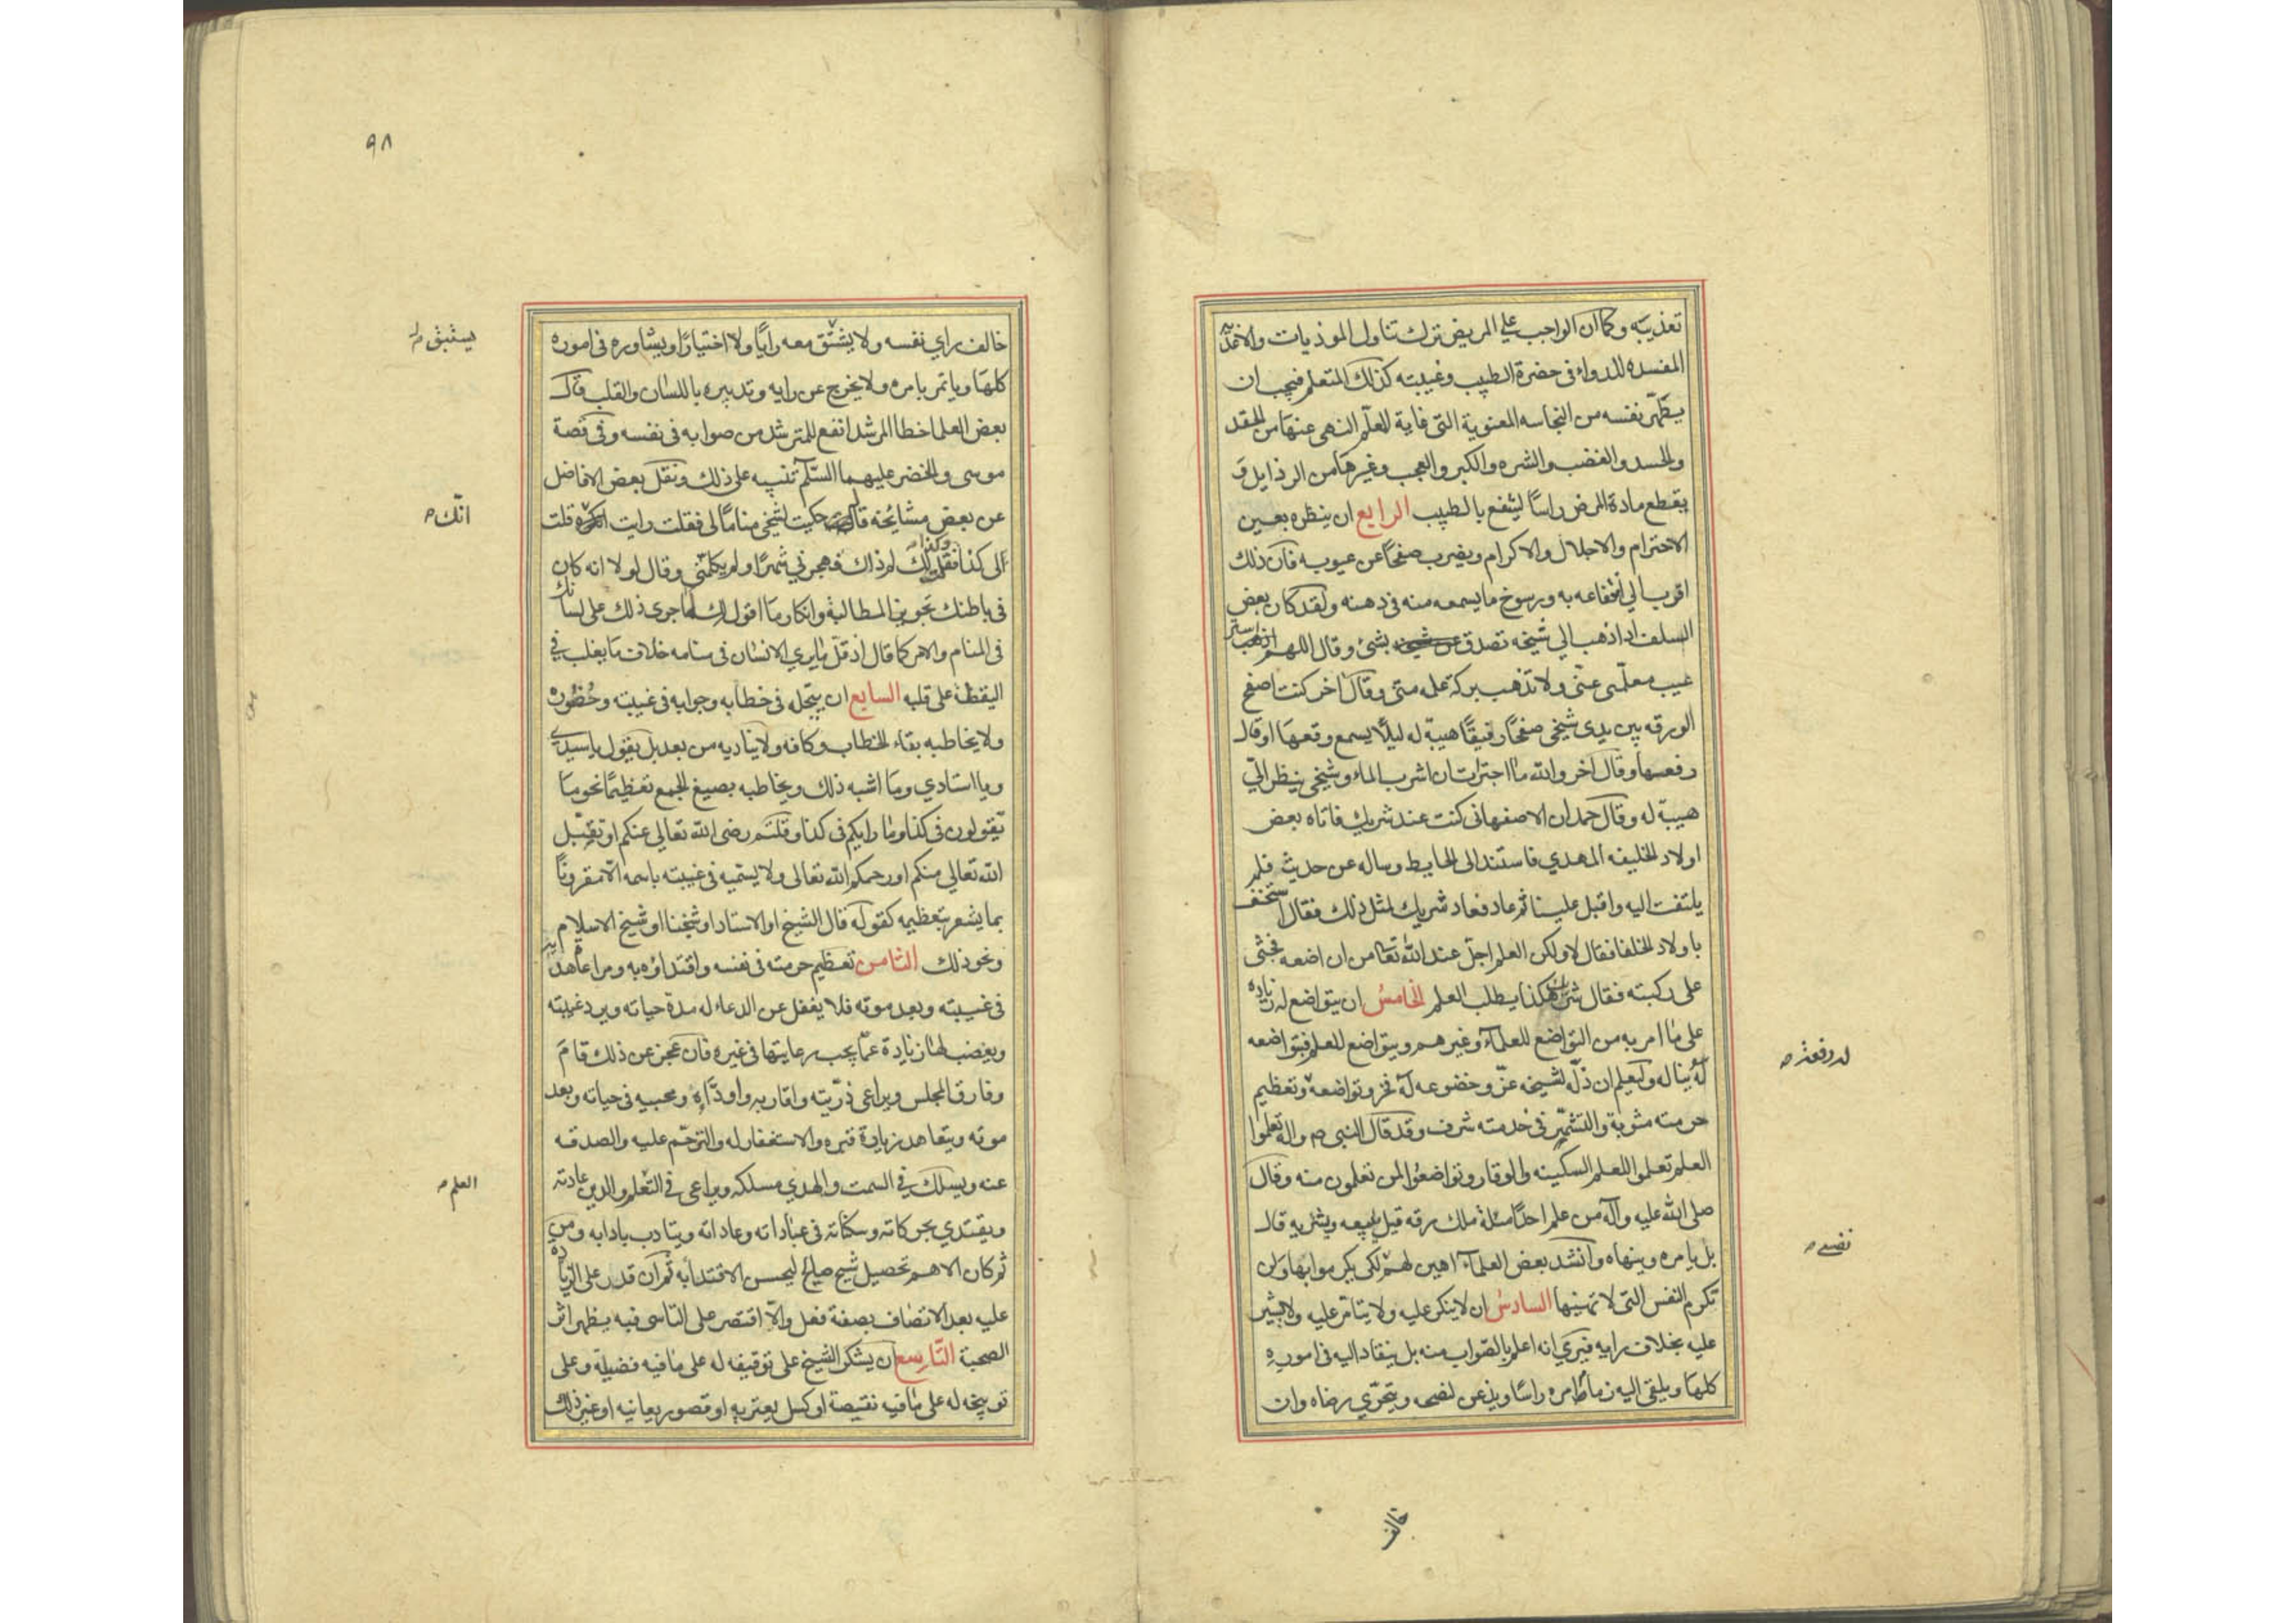 تعذيبه وكما ان الواجب على المريض ترك تناول الموذيات والاغذية
المفسده للدواء فى حضرة الطبيب وغيبته كذلك المتعلم فيجب ان
يطهّر نفسه من النجاسه المعنوية التى غاية المعلّم النهى عنها من الحقد
والحسد والغضب والشره والكبر والعجب وغيرها من الرذايل و
يقطع مادة المرض راسًا لينتفع بالطبيب الرابع ان ينظره بعين
الاحترام والاجلال والاكرام ويضرب صفحًا عن عيوبه فان ذلك
اقرب الي انتفاعه به ورسوخ ما يسمعه منه فى ذهنه ولقد كان بعض
السلف اذا ذهب الي شيخه تصدق بشئ وقال اللهم استر
عيب معلّمى عنّى ولا تذهب بركة علمه منّى وقال اخر كنت اصفح
الورقه بين يدى شيخى صفحًا رقيقًا هيبة له ليلًا يسمع وقعها او قال
رفعها وقال آخر والله ما اجترات ان اشرب الماء وشيخى ينظر اليّ
هيبة له وقال حمدان الاصفهانى كنت عند شريك فاتاه بعض
اولاد الخليفه المهدي فاستند الى الحايط وساله عن حديث فلم
يلتفت اليه واقبل علينا ثم عاد فعاد شريك لمثل ذلك فقال اتستخف
باولاد الخلفا فقال لا ولكن العلم اجلّ عند الله تعا من ان اضعه فجثى
على ركبته فقال شريك هكذا يطلب العلم الخامس ان يتواضع له زياده
على ما امر به من التواضع للعلماء وغيرهم ويتواضع للعلم فبتواضعه
له يناله وليعلم ان ذلّه لشيخه عزّ وخضوعه له فخر وتواضعه وتعظيم
له رفعة ص
حرمته مثوبة والتشمّر فى خدمته شرف وقد قال النبى ص واله تعلموا
العلم وتعلموا للعلم السكينه والوقار وتواضعوا لمن تعلمون منه وقال
صلى الله عليه وآله من علم احدًا مسئلة ملك رقه قيل ايبيعه ويشتريه قال
بل يامره وينهاه وانشد بعض العلماء اهين لهم لكى يكرموا بها ولن
نفسى ص
تكرم النفس التى لا تهينها السادس ان لا ينكر عليه ولا يتامّر عليه ولا يشير
عليه بخلاف رايه فيرى انه اعلم بالصّواب منه بل ينقاد اليه فى اموره
كلها ويلقى اليه زمام امره راسًا ويذعن لنصحه ويتحرّي رضاه وان
خالف
٩٨
خالف راي نفسه ولا يستبق معه رايًا ولا اختيارًا ويشاوره فى اموره
كلها وياتمر بامره ولا يخرج عن رايه وتدبيره باللسان والقلب قال
بعض العلما خطا المرشد انفع للمترشد من صوابه فى نفسه وفى قصة
موسى والخضر عليهما السّلم تنبيه على ذلك ونقل بعض الافاضل
عن بعض مشائخه قال حكيت لشيخى منامًا لى فقلت رايت انك قلت
انّك ص
الى كذا وكذا فقلت لك لم ذاك فهجرنى شهرًا ولم يكلمنى وقال لولا انه كان
فى باطنك تجويز المطالبة وانكار ما اقول لك لما جرى ذلك على لسانك
فى المنام والامر كما قال اذ قلّ ما يري الانسان فى منامه خلاف ما يغلب في
اليقظة على قلبه السابع ان يبجّله فى خطابه وجوابه فى غيبته وحضوره
ولا يخاطبه بتاء الخطاب وكافه ولا يناديه من بعد بل يقول يا سيدي
ويا استادي وما اشبه ذلك ويخاطبه بصيغ الجمع تعظيمًا نحو ما
تقولون فى كذا وما رايكم فى كذا وقلتم رضى الله تعالي عنكم او تقبّل
الله تعالي منكم او رحمكم الله تعالى ولا يسمّيه فى غيبته باسمه الّا مقرونًا
بما يشعر بتعظيمه كقوله قال الشيخ او الاستاد او شيخنا او شيخ الاسلام
ونحو ذلك الثامن تعظيم حرمته فى نفسه واقتداؤه به ومراعاة هديه
فى غيبته وبعد موته فلا يغفل عن الدعاء له مدة حياته ويرد غيبته
ويغضب لها زيادة عمّا يجب رعايتها فى غيره فان عجز عن ذلك قام
وفارق المجلس ويراعى ذرّيته واقاربه واودّاءه ومحبيه فى حياته وبعد
موته ويتعاهد زيارة قبره والاستغفار له والترحّم عليه والصدقه
عنه ويسلك في السمت والهدي مسلكه ويراعى فى العلم والدين عادته
العلم ص
ويقتدي بحركاته وسكناته فى عباداته وعاداته ويتادب بادابه ومن
ثم كان الاهم تحصيل شيخ صالح ليحسن الاقتداء به ثم ان قدر على الزيادة
عليه بعد الاتصاف بصفته فعل والّا اقتصر على التاسى فبه يظهر اثر
الصحبة التاسع ان يشكر الشيخ على توقيفه له على ما فيه فضيلة وعلى
توبيخه له على ما فيه نقيصة او كسل يعتريه او قصور يعانيه او غير ذلك